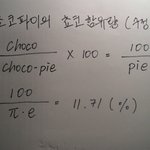 초코파이의 초코 함유량 (수정
choco / choco-pie × 100 = 100 / pie
100 / π·e = 11.71 (%)